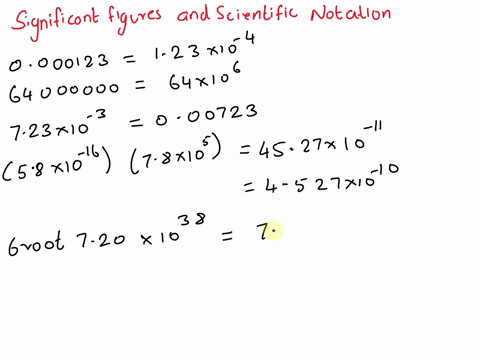 Significant figures and Scientific Notation
0.000123 = 1.23×10⁻⁴
64000000 = 64×10⁶
7.23×10⁻³ = 0.00723
(5.8×10⁻¹⁶) (7.8×10⁵) = 45.27×10⁻¹¹
= 4.527×10⁻¹⁰
6root 7.20 ×10³⁸ = 7.